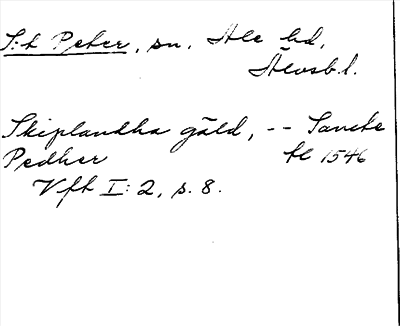 S:t Peter, sn, Ale hd,
Älvsb.l.
Skiplandha gäld, -- Sancte
Pedher fl 1546
Vfh I: 2, s. 8.